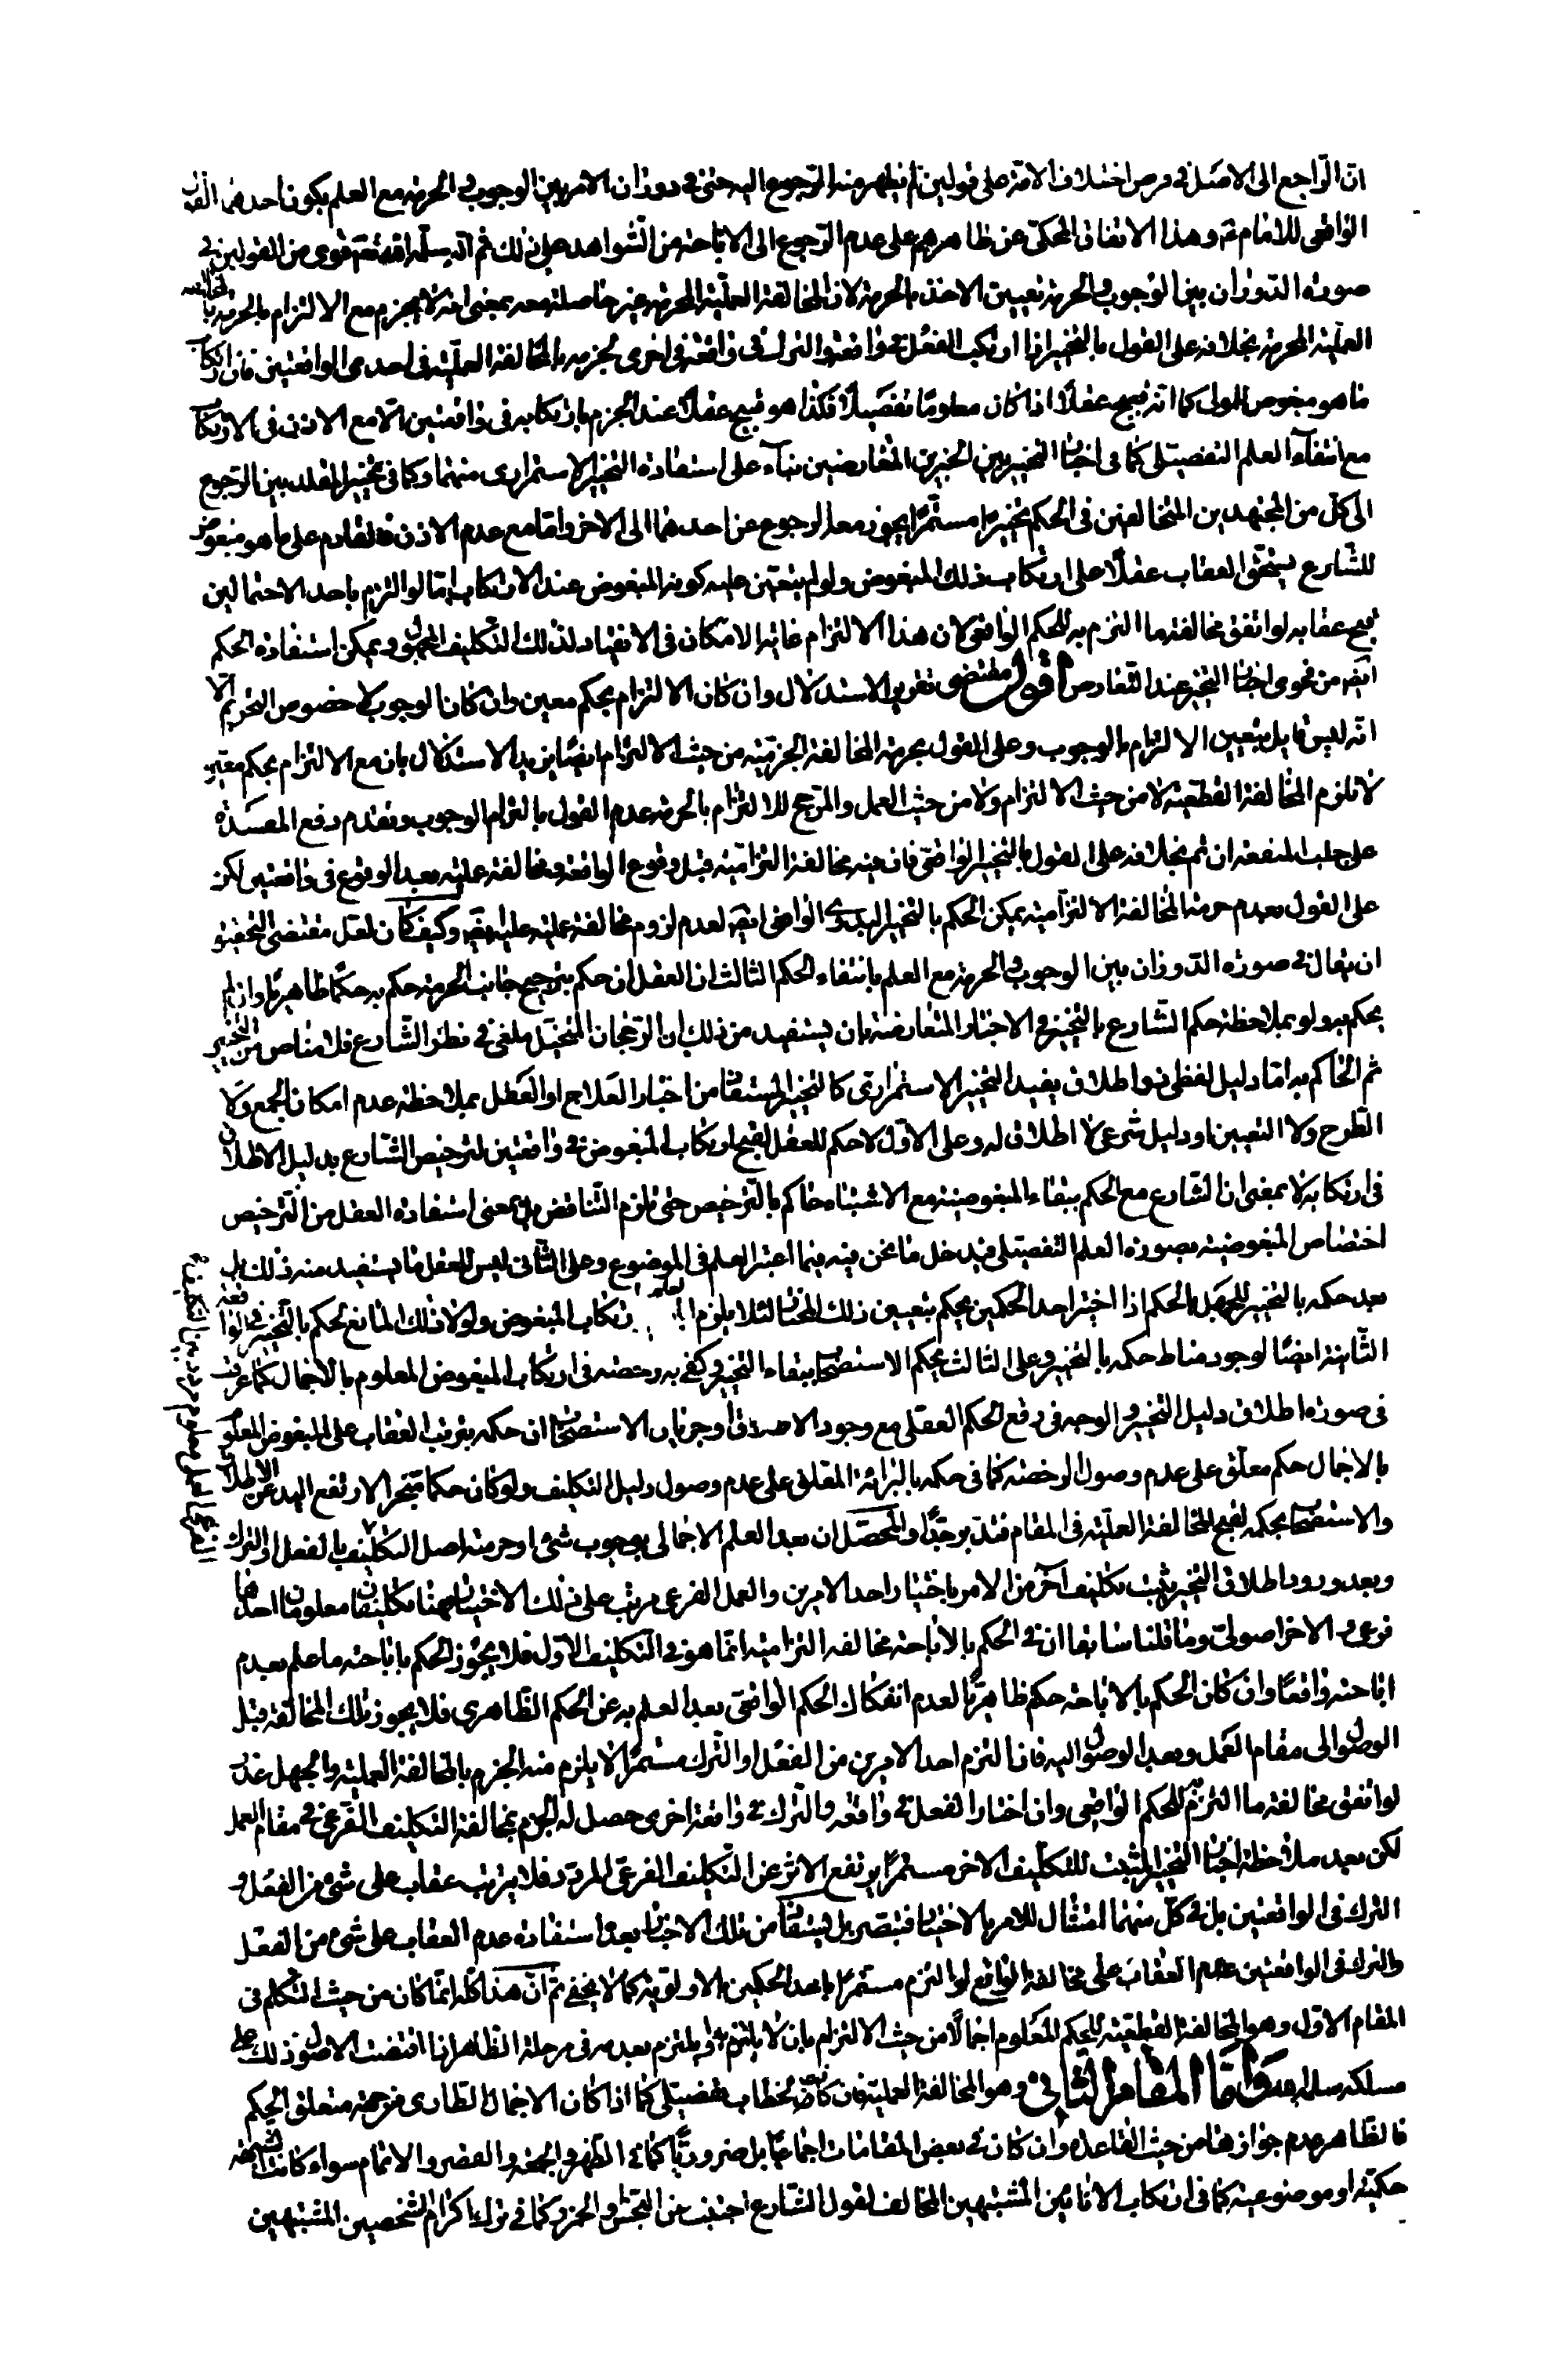 ان الراجع الى الاصل فى فرض اختلاف الامة على قولين لم يظهر منه الرجوع اليه حتى فى دوران الامر بين الوجوب و الحرمة مع العلم بكون احدهما
الواقعى للامام ع و هذا الاتفاق المحكى عن ظاهرهم على عدم الرجوع الى الاباحة من الشواهد على ذلك ثم انه سلمه الله تع قوى من القولين فى
صورة الدوران بين الوجوب و الحرمة تعيين الاخذ بالحرمة لان المخالفة العملية المحرمة غير حاصلة معه بمعنى انه لا يجزم مع الالتزام بالحرمة بالمخالفة
العملية المحرمة بخلافه على القول بالتخيير اذا ارتكب الفعل فى واقعة و الترك فى واقعة اخرى يجزم بالمخالفة العملية فى احدى الواقعتين فان ارتكاب
ما هو مبغوض المولى كما انه قبيح عقلا اذا كان معلوما تفصيلا فكذا هو قبيح عقلا عند الجزم بارتكابه فى واقعتين الا مع الاذن فى الارتكاب
مع انتفاء العلم التفصيلى كما فى اخبار التخيير بين الخبرين المتعارضين بناء على استفادة التخيير الاستمرارى منهما و كما فى تخيير المقلد بين الرجوع
الى كل من المجتهدين المتخالفين فى الحكم تخييرا مستمرا يجوز معه الرجوع عن احدهما الى الاخر و اما مع عدم الاذن فالقادم على ما هو مبغوض
للشارع يستحق العقاب عقلا على ارتكاب ذلك المبغوض و لو لم يتعين عليه كونه المبغوض عند الارتكاب اما لو التزم باحد الاحتمالين
قبح عقابه لو اتفق مخالفة ما التزم به للحكم الواقعى لان هذا الالتزام غاية الامكان فى الانقياد لذلك التكليف المجهول و يمكن استفادة الحكم
ايضا من فحوى اخبار التخيير عند التعارض اقول مقتضى تقريب الاستدلال و ان كان الالتزام بحكم معين و ان كان الوجوب لا خصوص التحريم الا
انه ليس قايل بتعيين الالتزام بالوجوب و على القول بحرمة المخالفة الجزمية من حيث الالتزام ايضا يزيد الاستدلال بان مع الالتزام بحكم معين
لا تلزم المخالفة القطعية لا من حيث الالتزام و لا من حيث العمل و المرجح للالتزام بالحرمة عدم القول بالتزام الوجوب و تقدم دفع المفسدة
على جلب المنفعة ان تم بخلافه على القول بالتخيير الواقعى فان فيه مخالفة التزامية قبل وقوع الواقعة و مخالفة عملية بعد الوقوع فى واقعتين لكن
على القول بعدم حرمة المخالفة الالتزامية يمكن الحكم بالتخيير البدوى الواقعى ايضا لعدم لزوم مخالفة عملية عليه ايضا و كيف كان لعل مقتضى التحقيق
ان يقال فى صورة الدوران بين الوجوب و الحرمة مع العلم بانتفاء الحكم الثالث ان العقل ان حكم بترجيح جانب الحرمة حكم به حكما ظاهريا و ان لم
يحكم به و لو بملاحظة حكم الشارع بالتخيير فى الاخبار المتعارضة بان يستفيد من ذلك ان الرجحان المتخيل ملغى فى نظر الشارع فلا مناص من التخيير
ثم الحاكم به اما دليل لفظى ذو اطلاق يفيد التخيير الاستمرارى كالتخيير المستفاد من اخبار العلاج او العقل بملاحظة عدم امكان الجمع و لا
الطرح و لا التعيين او دليل شرعى لا اطلاق له و على الاول لا حكم للعقل لقبح ارتكاب المبغوض فى واقعتين لترخيص الشارع بدليل الاطلاق
فى ارتكابه لا بمعنى ان الشارع مع الحكم ببقاء المبغوضية مع الاشتباه حاكم بالترخيص حتى يلزم التناقض بل بمعنى استفادة العقل من الترخيص
اختصاص المبغوضية بصورة العلم التفصيلى فيدخل ما نحن فيه فيما اعتبر العلم فى الموضوع و على الثانى ليس للعقل ما يستفيد منه ذلك بل
بعد حكمه بالتخيير للجهل بالحكم اذا اختير احد الحكمين يحكم بتعيين ذلك المختار لئلا يلزم ارتكاب المبغوض و لو لا ذلك المانع لحكم بالتخيير فى الواقعة
الثانية ايضا لوجود مناط حكمه بالتخيير و على الثالث يحكم الاستصحاب ببقاء التخيير و كفى به رخصة فى ارتكاب المبغوض المعلوم بالاجمال كما عرفت
فى صورة اطلاق دليل التخيير و الوجه فى رفع الحكم العقلى مع وجود الاطلاق او جريان الاستصحاب ان حكمه بترتب العقاب على المبغوض المعلوم
بالاجمال حكم معلق على عدم وصول الرخصة كما فى حكمه بالبرائة المعلق على عدم وصول دليل التكليف و لو كان حكما منجزا لارتفع اليد عن الاطلاق
و الاستصحاب بحكمه لقبح المخالفة العملية فى المقام فتدبر جدا و المحصل ان بعد العلم الاجمالى بوجوب شىء او حرمته اصل التكليف بالفعل او الترك
و بعد ورود اطلاق التخيير يثبت تكليف اخر من الامر باختيار احد الامرين و العمل الفرعى مرتب على ذلك الاختيار فهنا تكليفان معلومان احدهما
فرعى و الاخر اصولى و ما قلنا سابقا ان فى الحكم بالاباحة مخالفة التزامية انما هو فى التكليف الاول فلا يجوز الحكم باباحة ما علم بعدم
اباحته واقعا و ان كان الحكم بالاباحة حكم ظاهريا لعدم انفكاك الحكم الواقعى بعد العلم به عن الحكم الظاهرى فلا يجوز تلك المخالفة قبل
الوصول الى مقام العمل و بعد الوصول اليه فان التزم احد الامرين من الفعل او الترك مستمرا لا يلزم منه الجزم بالمخالفة العملية و الجهل عذر
لو اتفق مخالفة ما التزم للحكم الواقعى و ان اختار الفعل فى واقعة و الترك فى واقعة اخرى حصل له الجزم بمخالفة التكليف الفرعى فى مقام العمل
لكن بعد ملاحظة اخبار التخيير المثبت للتكليف الاخر مستمرا يرتفع الاثر عن التكليف الفرعى المردد فلا يترتب عقاب على شىء من الفعل و
الترك فى الواقعتين بل فى كل منهما امتثال للامر بالاختيار فتبصر بل يستفاد من تلك الاخبار بعد استفادة عدم العقاب على شىء من الفعل
و الترك فى الواقعتين عدم العقاب على مخالفة الواقع لو التزم مستمرا باحد الحكمين بالاولوية كما لا يخفى ثم ان هذا كله انما كان من حيث التكلم فى
المقام الاول و هو المخالفة القطعية للحكم المعلوم اجمالا من حيث الالتزام بان لا يلتزم به او يلتزم بعدمه فى مرحلة الظاهر اذا اقتضت الاصول ذلك على
مسلكه سلمه الله و اما المقام الثانى و هو المخالفة العملية فان كانت لخطاب تفصيلى كما اذا كان الاجمال الطارى من جهة متعلق الحكم
فالظاهر عدم جوازها من حيث القاعدة و ان كان فى بعض المقامات اجماعيا بل ضروريا كما فى الظهر و الجمعة و القصر و الاتمام سواء كانت الشبهة
حكمية او موضوعية كما فى ارتكاب الانائين المشتبهين المخالف لقول الشارع اجتنب عن النجس و الخمر و كما فى ترك اكرام شخصين المشتبهين